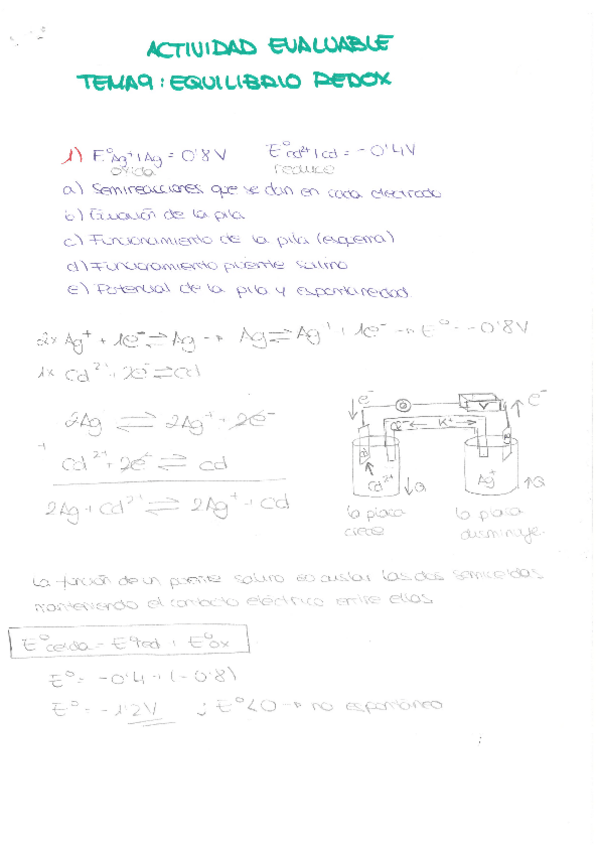 ACTIVIDAD EVALUABLE
TEMA 9: EQUILIBRIO REDOX
1) E° Ag+|Ag = 0'8 V E° Cd2+|Cd = -0'4 V
oxida reduce
a) Semireacciones que se dan en cada electrodo
b) Ecuación de la pila
c) Funcionamiento de la pila (esquema)
d) Funcionamiento puente salino
e) Potencial de la pila y espontaneidad.
2x Ag+ + 1e- ⇌ Ag → Ag ⇌ Ag+ + 1e- → E° = -0'8V
1x Cd2+ + 2e- ⇌ Cd
2Ag ⇌ 2Ag+ + 2e-
+
Cd2+ + 2e- ⇌ Cd
2Ag + Cd2+ ⇌ 2Ag+ + Cd
↓ e- V ↑ e-
← K+ →
Cd2+ ↓Q Ag+ ↑Q
la placa la placa
crece disminuye
La función de un puente salino es aislar las dos semiceldas
manteniendo el contacto eléctrico entre ellas
E°celda = E°red + E°ox
E° = -0'4 + (-0'8)
E° = -1'2V ; E°<0 → no espontáneo